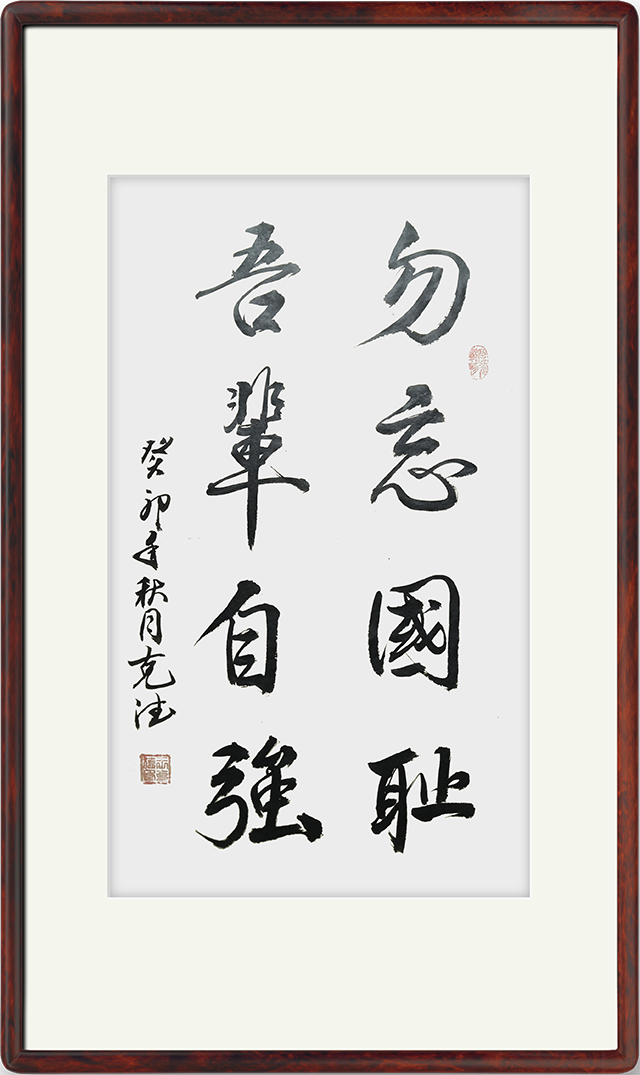 勿忘國耻
吾輩自強
癸卯年秋月克法